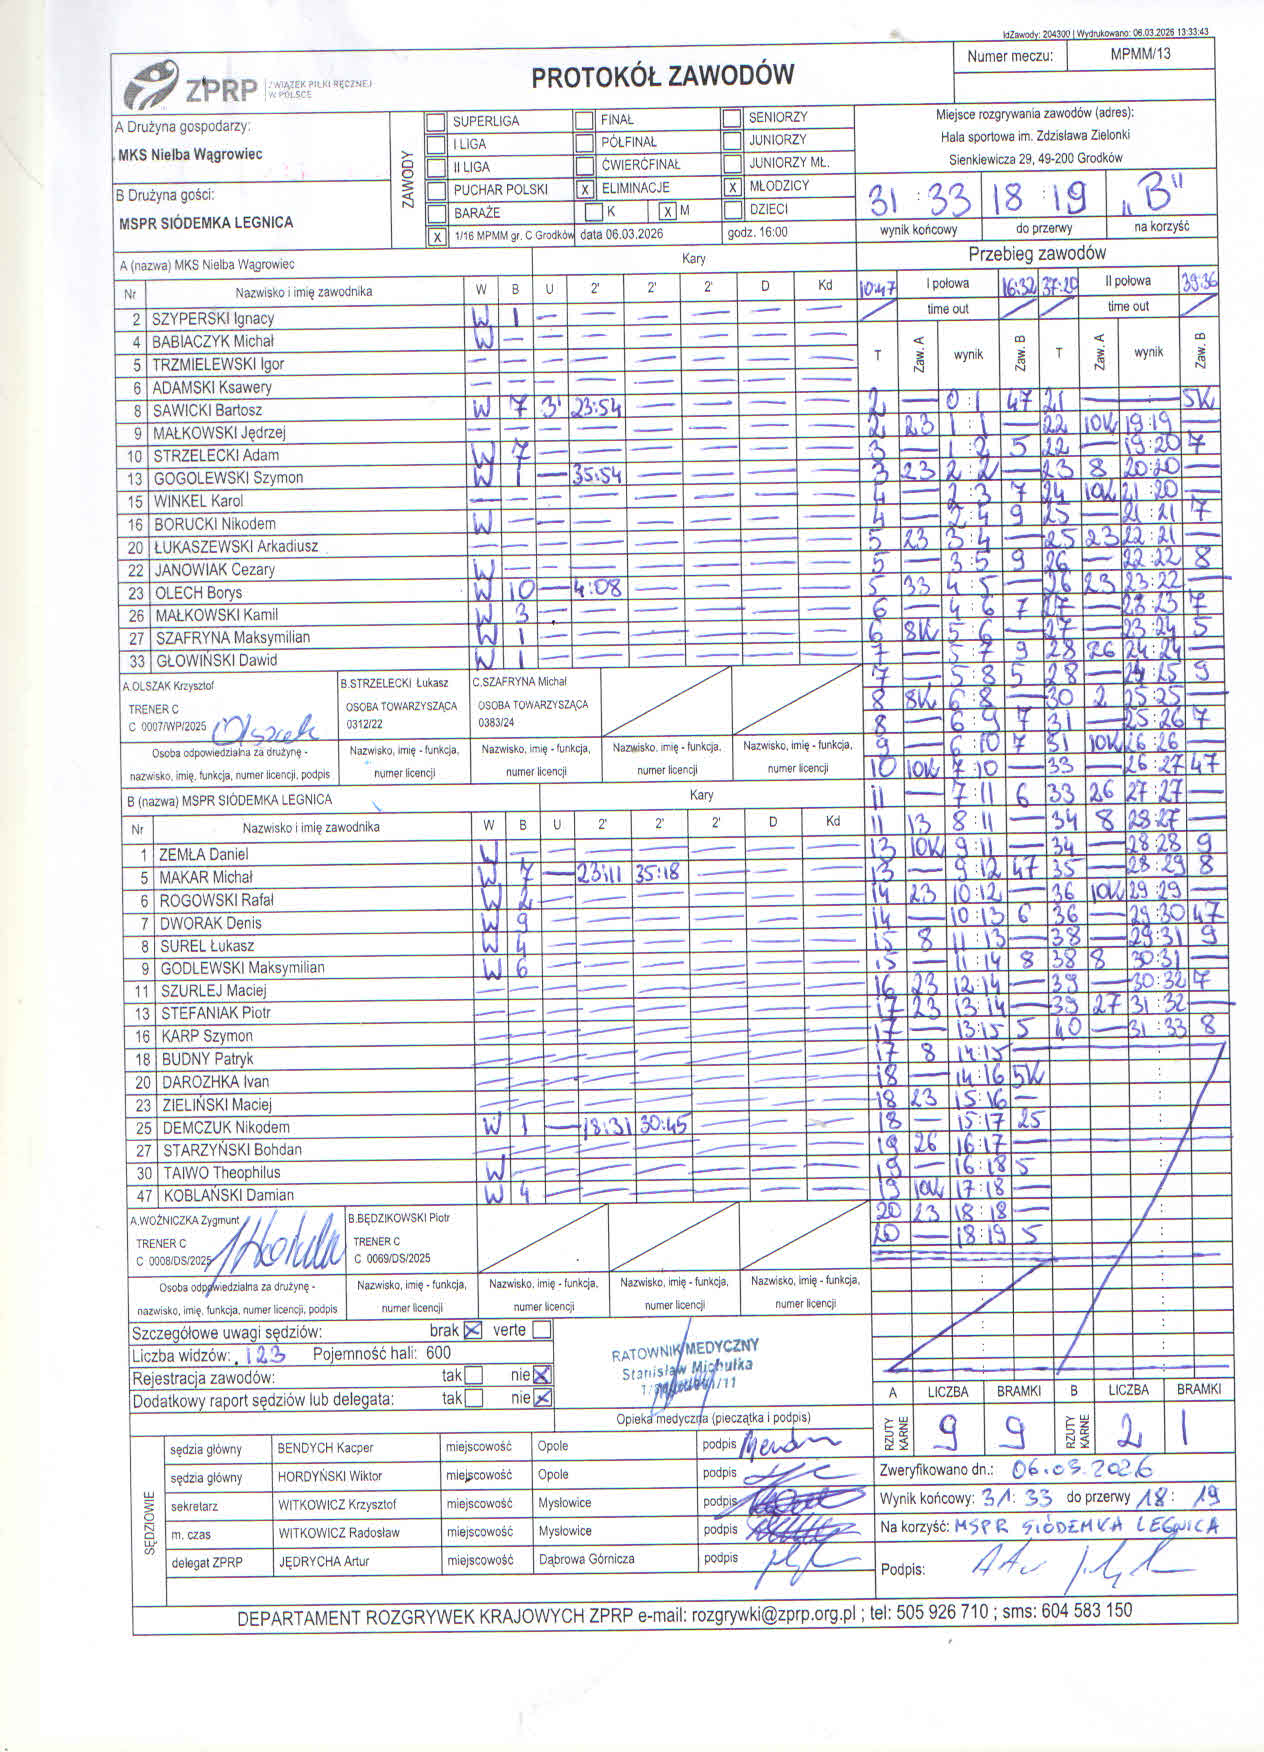 IdZawody: 204300 | Wydrukowano: 06.03.2026 13:33:43
ZPRP ZWIĄZEK PIŁKI RĘCZNEJ W POLSCE
PROTOKÓŁ ZAWODÓW
Numer meczu: MPMM/13
A Drużyna gospodarzy:
MKS Nielba Wągrowiec
B Drużyna gości:
MSPR SIÓDEMKA LEGNICA
ZAWODY
SUPERLIGA FINAŁ SENIORZY
I LIGA PÓŁFINAŁ JUNIORZY
II LIGA ĆWIERĆFINAŁ JUNIORZY MŁ.
PUCHAR POLSKI X ELIMINACJE X MŁODZICY
BARAŻE K X M DZIECI
X 1/16 MPMM gr. C Grodków data 06.03.2026 godz. 16:00
Miejsce rozgrywania zawodów (adres):
Hala sportowa im. Zdzisława Zielonki
Sienkiewicza 29, 49-200 Grodków
31 : 33 18 : 19 „B"
wynik końcowy do przerwy na korzyść
A (nazwa) MKS Nielba Wągrowiec Kary
Nr Nazwisko i imię zawodnika W B U 2' 2' 2' D Kd
2 SZYPERSKI Ignacy W 1 —
4 BABIACZYK Michał W —
5 TRZMIELEWSKI Igor — —
6 ADAMSKI Ksawery — —
8 SAWICKI Bartosz W 7 3' 23:54
9 MAŁKOWSKI Jędrzej — —
10 STRZELECKI Adam W 7 —
13 GOGOLEWSKI Szymon W 1 — 35:54
15 WINKEL Karol — —
16 BORUCKI Nikodem W —
20 ŁUKASZEWSKI Arkadiusz — —
22 JANOWIAK Cezary W —
23 OLECH Borys W 10 — 4:08
26 MAŁKOWSKI Kamil W 3 —
27 SZAFRYNA Maksymilian W 1 —
33 GŁOWIŃSKI Dawid W 1 —
A.OLSZAK Krzysztof
TRENER C
C 0007/WP/2025
B.STRZELECKI Łukasz
OSOBA TOWARZYSZĄCA
0312/22
C.SZAFRYNA Michał
OSOBA TOWARZYSZĄCA
0383/24
Osoba odpowiedzialna za drużynę - nazwisko, imię, funkcja, numer licencji, podpis
Nazwisko, imię - funkcja, numer licencji
Nazwisko, imię - funkcja, numer licencji
Nazwisko, imię - funkcja, numer licencji
Nazwisko, imię - funkcja, numer licencji
B (nazwa) MSPR SIÓDEMKA LEGNICA Kary
Nr Nazwisko i imię zawodnika W B U 2' 2' 2' D Kd
1 ZEMŁA Daniel W —
5 MAKAR Michał W 7 — 23:11 35:18
6 ROGOWSKI Rafał W 2
7 DWORAK Denis W 9
8 SUREL Łukasz W 4
9 GODLEWSKI Maksymilian W 6
11 SZURLEJ Maciej
13 STEFANIAK Piotr
16 KARP Szymon
18 BUDNY Patryk
20 DAROZHKA Ivan
23 ZIELIŃSKI Maciej
25 DEMCZUK Nikodem W 1 — 18:31 30:45
27 STARZYŃSKI Bohdan
30 TAIWO Theophilus W
47 KOBLAŃSKI Damian W 4
A.WOŹNICZKA Zygmunt
TRENER C
C 0008/DS/2025
B.BĘDZIKOWSKI Piotr
TRENER C
C 0069/DS/2025
Osoba odpowiedzialna za drużynę - nazwisko, imię, funkcja, numer licencji, podpis
Nazwisko, imię - funkcja, numer licencji
Nazwisko, imię - funkcja, numer licencji
Nazwisko, imię - funkcja, numer licencji
Nazwisko, imię - funkcja, numer licencji
Przebieg zawodów
10:47 I połowa 16:32 37:29 II połowa 39:36
time out time out
T Zaw. A wynik Zaw. B T Zaw. A wynik Zaw. B
2 — 0:1 47 21 — 5K
2 23 1:1 — 22 10K 19:19 —
3 — 1:2 5 22 — 19:20 7
3 23 2:2 — 23 8 20:20 —
4 — 2:3 7 24 10K 21:20 —
4 — 2:4 9 25 — 21:21 7
5 23 3:4 — 25 23 22:21 —
5 — 3:5 9 26 — 22:22 8
5 33 4:5 — 26 23 23:22 —
6 — 4:6 7 27 — 23:23 7
6 8K 5:6 — 27 — 23:24 5
7 — 5:7 9 28 26 24:24 —
7 — 5:8 5 28 — 24:25 9
8 8K 6:8 — 30 2 25:25 —
8 — 6:9 7 31 — 25:26 7
9 — 6:10 7 31 10K 26:26 —
10 10K 7:10 — 33 — 26:27 47
11 — 7:11 6 33 26 27:27 —
11 13 8:11 — 34 8 28:27 —
13 10K 9:11 — 34 — 28:28 9
13 — 9:12 47 35 — 28:29 8
14 23 10:12 — 36 10K 29:29 —
14 — 10:13 6 36 — 29:30 47
15 8 11:13 — 38 — 29:31 9
15 — 11:14 8 38 8 30:31 —
16 23 12:14 — 39 — 30:32 7
17 23 13:14 — 39 27 31:32 —
17 — 13:15 5 40 — 31:33 8
17 8 14:15 —
18 — 14:16 5K
18 23 15:16 —
18 — 15:17 25
19 26 16:17 —
19 — 16:18 5
19 10K 17:18 —
20 23 18:18 —
20 — 18:19 5
Szczegółowe uwagi sędziów: brak X verte
Liczba widzów: 123 Pojemność hali: 600
Rejestracja zawodów: tak nie X
Dodatkowy raport sędziów lub delegata: tak nie X
RATOWNIK MEDYCZNY
Stanisław Michułka
Opieka medyczna (pieczątka i podpis)
A LICZBA BRAMKI B LICZBA BRAMKI
RZUTY KARNE 9 9 RZUTY KARNE 2 1
SĘDZIOWIE
sędzia główny BENDYCH Kacper miejscowość Opole podpis
sędzia główny HORDYŃSKI Wiktor miejscowość Opole podpis
sekretarz WITKOWICZ Krzysztof miejscowość Mysłowice podpis
m. czas WITKOWICZ Radosław miejscowość Mysłowice podpis
delegat ZPRP JĘDRYCHA Artur miejscowość Dąbrowa Górnicza podpis
Zweryfikowano dn.: 06.03.2026
Wynik końcowy: 31:33 do przerwy 18:19
Na korzyść: MSPR SIÓDEMKA LEGNICA
Podpis:
DEPARTAMENT ROZGRYWEK KRAJOWYCH ZPRP e-mail: rozgrywki@zprp.org.pl ; tel: 505 926 710 ; sms: 604 583 150